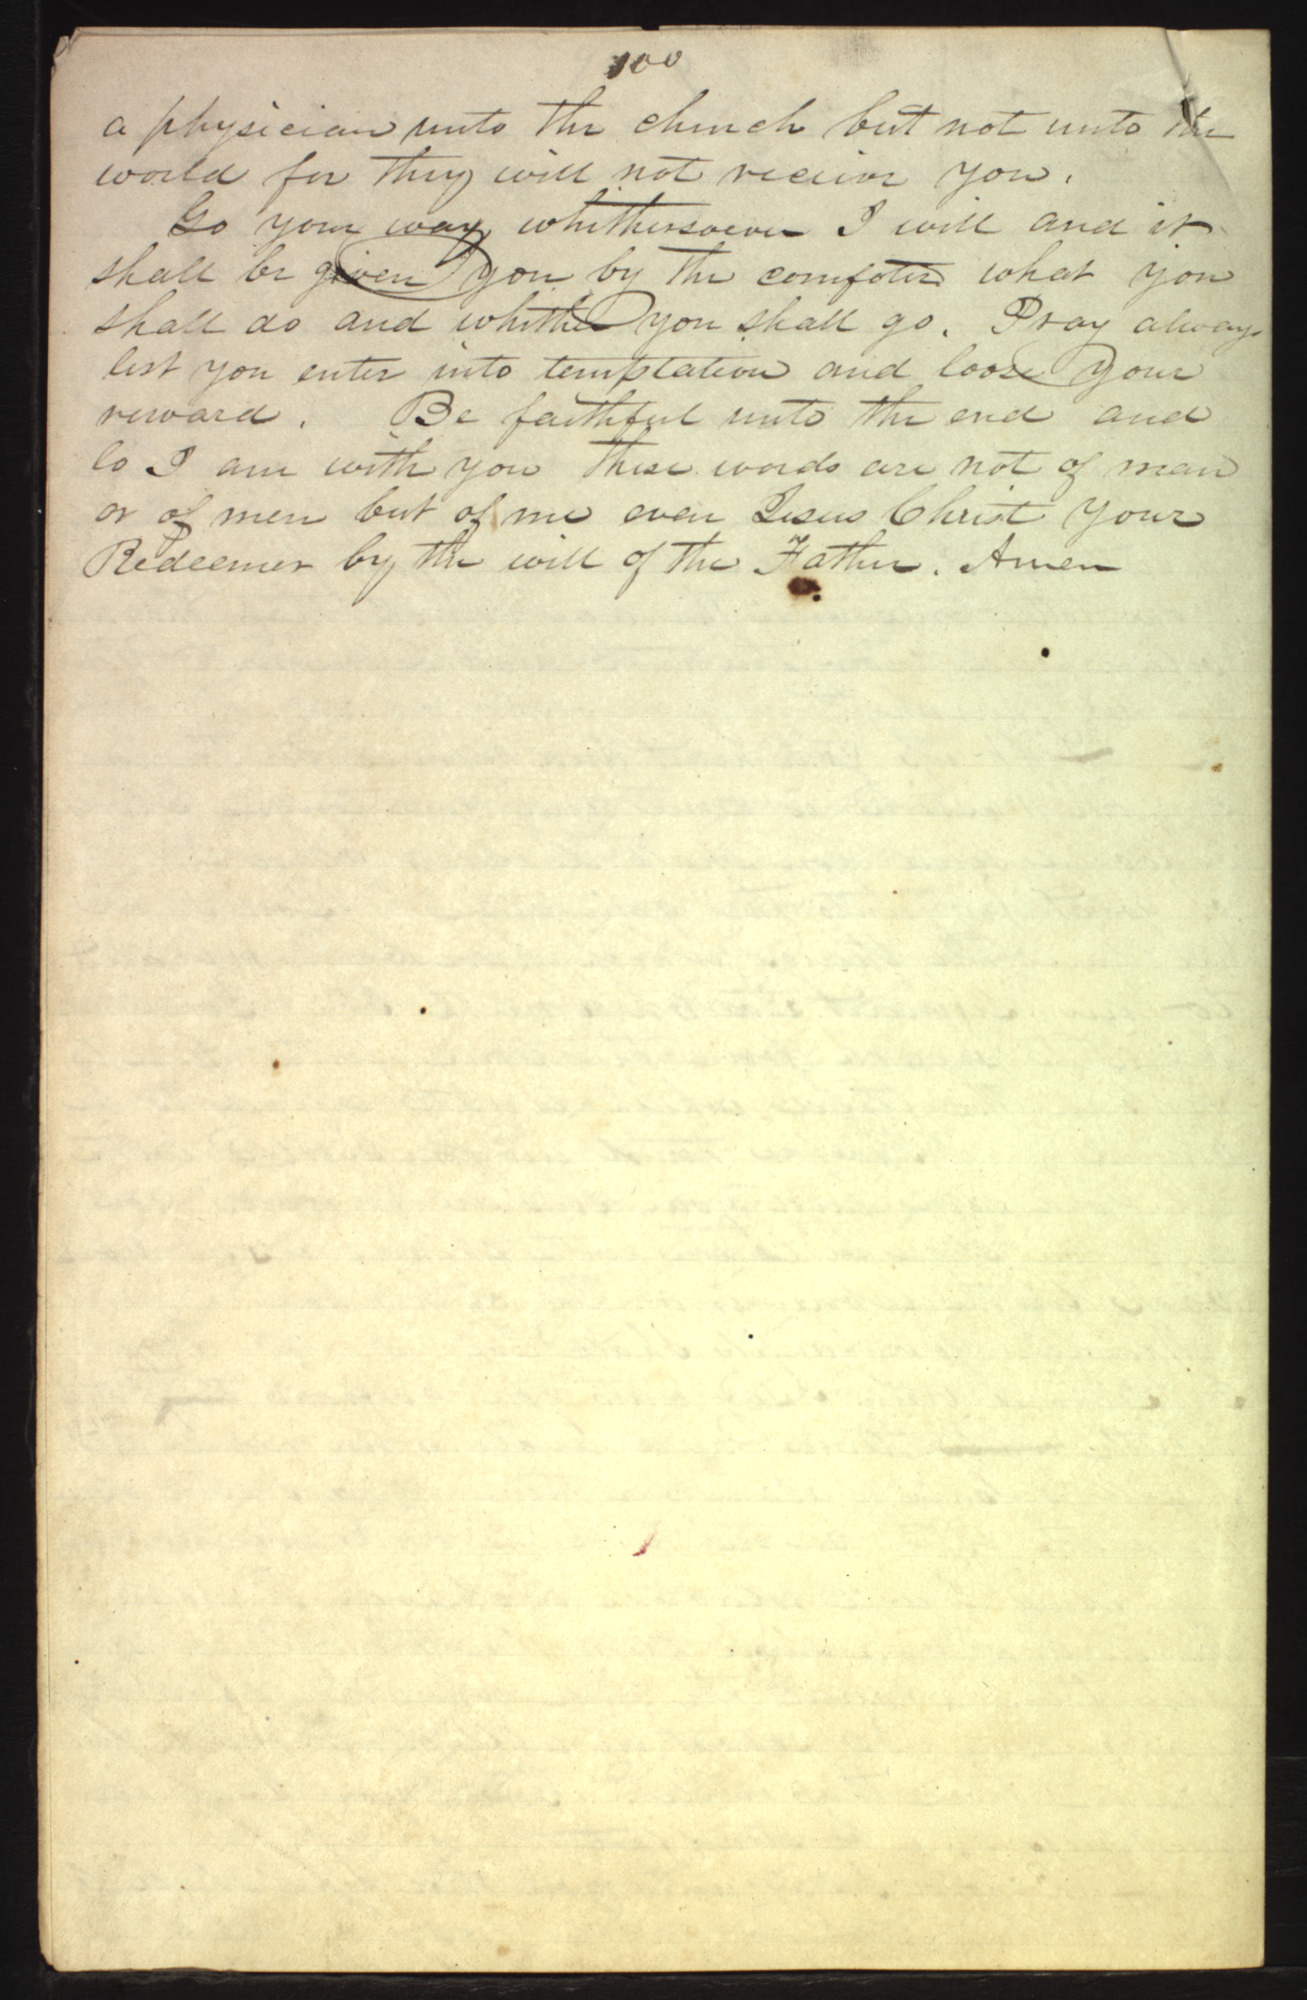 100
a physician unto the church but not unto the
world for they will not recieve you.
Go your way whithersoever I will and it
shall be given you by the comfoter what you
shall do and whither you shall go. Pray always
lest you enter into temptation and loose your
reward. Be faithful unto the end and
lo I am with you these words are not of man
or of men but of me even Jesus Christ your
Redeemer by the will of the Father. Amen